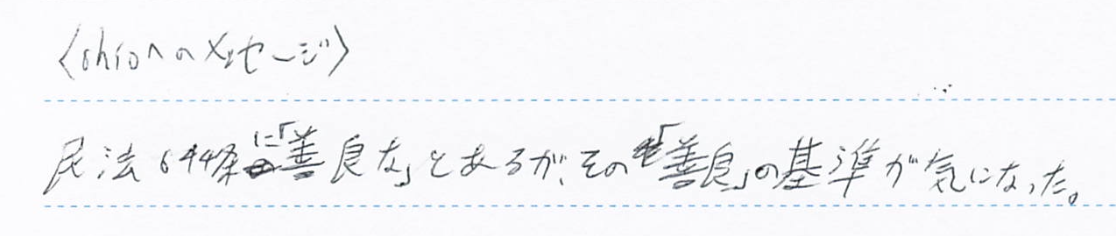 〈shioへのメッセージ〉
民法644条に「善良な」とあるが、その「善良」の基準が気になった。